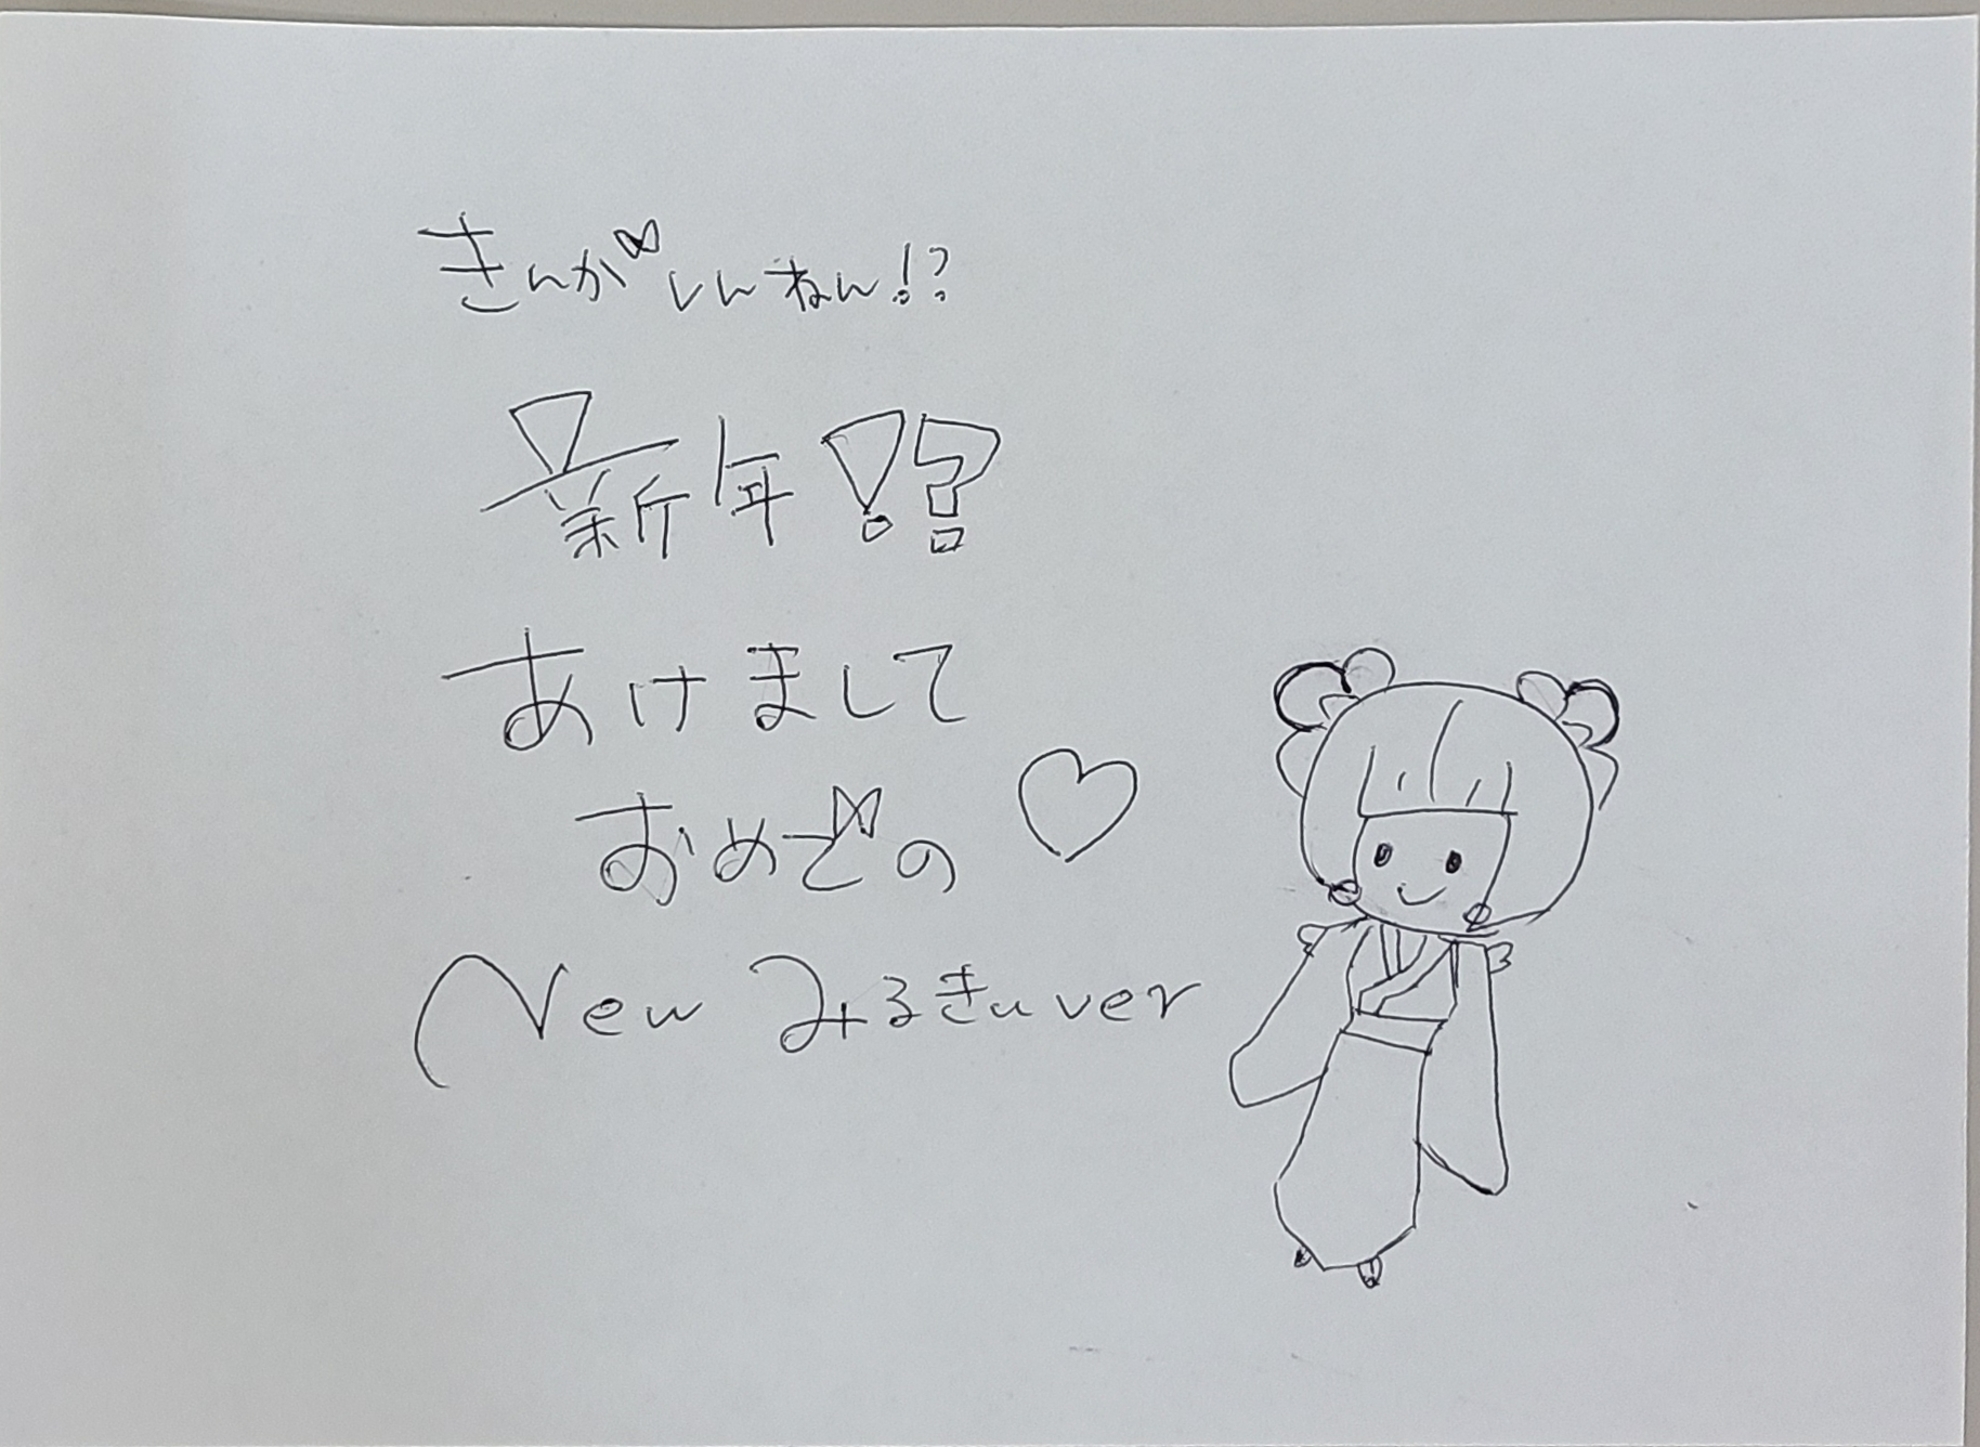 きんがしんねん!?
新年!?
あけまして
おめどの♡
New みるきぃver